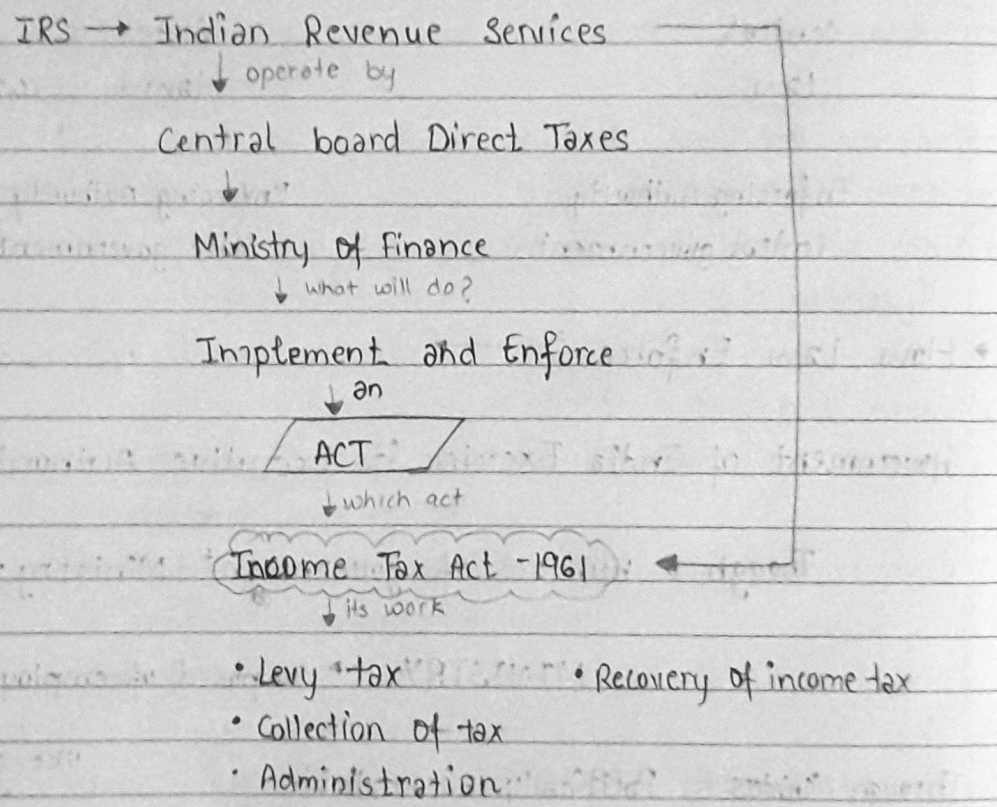 IRS → Indian Revenue Services
↓ operate by
Central board Direct Taxes
↓
Ministry of Finance
↓ what will do?
Implement and Enforce
↓ an
ACT
↓ which act
Income Tax Act - 1961
↓ its work
• Levy tax • Recovery of income tax
• Collection of tax
• Administration